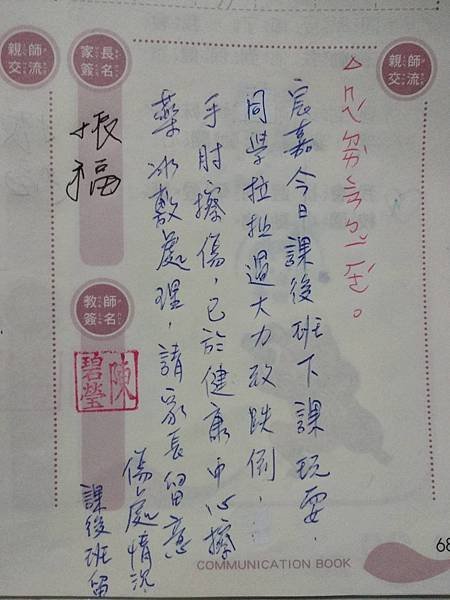 親師
交流
宸嘉今日課後班下課玩耍,
同學拉扯過大力致跌倒,
手肘擦傷,已於健康中心擦
藥冰敷處理,請家長留意
傷處情況
課後班留
家長
簽名
振福
教師
簽名
陳
碧瑩
親師
交流
COMMUNICATION BOOK
68